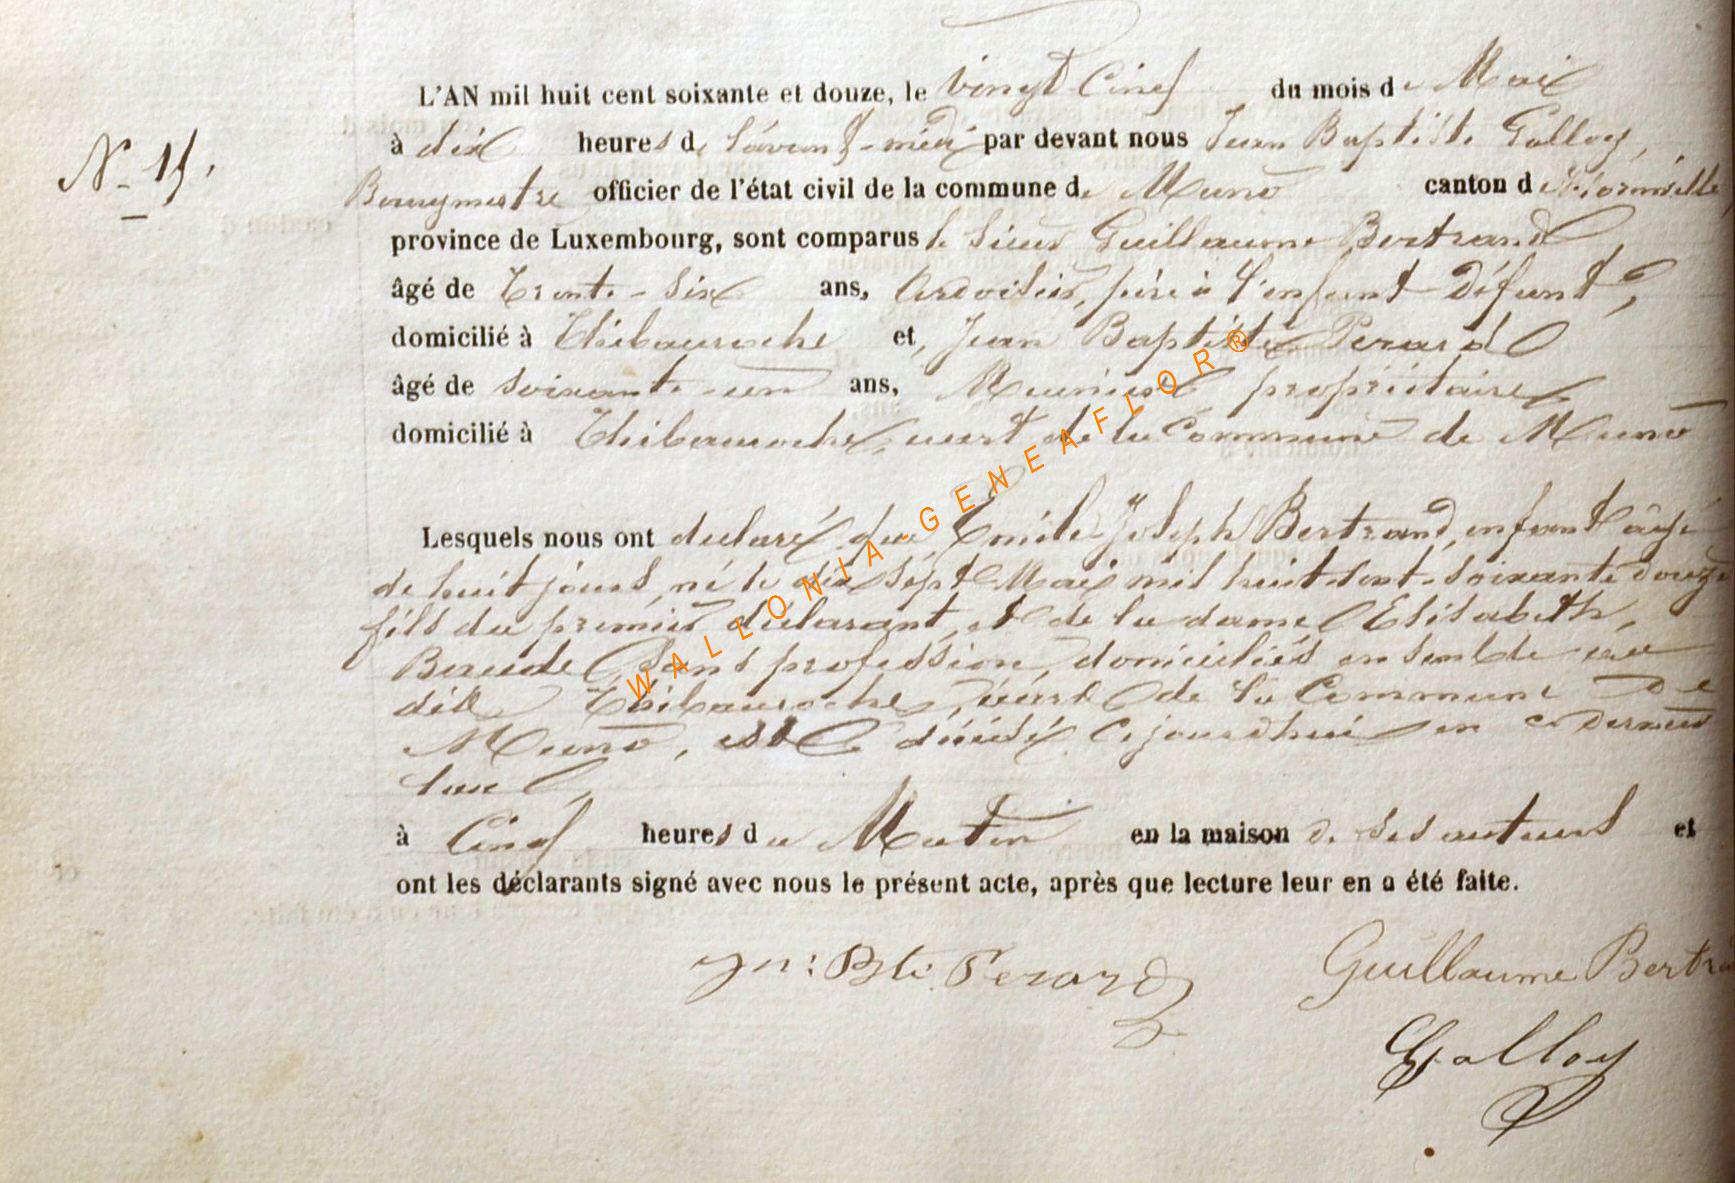 L'AN mil huit cent soixante et douze, le vingt Cinq du mois de Mai
N° 15.
à dix heures de l'avant-midi par devant nous Jean Baptiste Galloy,
Bourgmestre officier de l'état civil de la commune de Muno canton de Florenville
province de Luxembourg, sont comparus le Sieur Guillaume Bertrand
âgé de Trente-Six ans, Ardoisier, père à l'enfant défunt,
domicilié à Thibauroche et, Jean Baptiste Perard
âgé de soixante-un ans, Meunier propriétaire
domicilié à Thibauroche, de la Commune de Muno
Lesquels nous ont déclaré que Emile Joseph Bertrand, enfant âgé
de huit jours, né le dix sept Mai mil huit cent soixante douze
fils du premier déclarant, et de la dame Elisabeth,
sans profession, domiciliés ensemble au
dit Thibauroche, de la Commune De
Muno, est décédé Cejourd'hui en ce dernier
lieu
à Cinq heures du Matin en la maison de ses auteurs et
ont les déclarants signé avec nous le présent acte, après que lecture leur en a été faite.
Jn: Bte Perard Guillaume Bertra
Galloy
WALLONIA-GENEAFLOR®